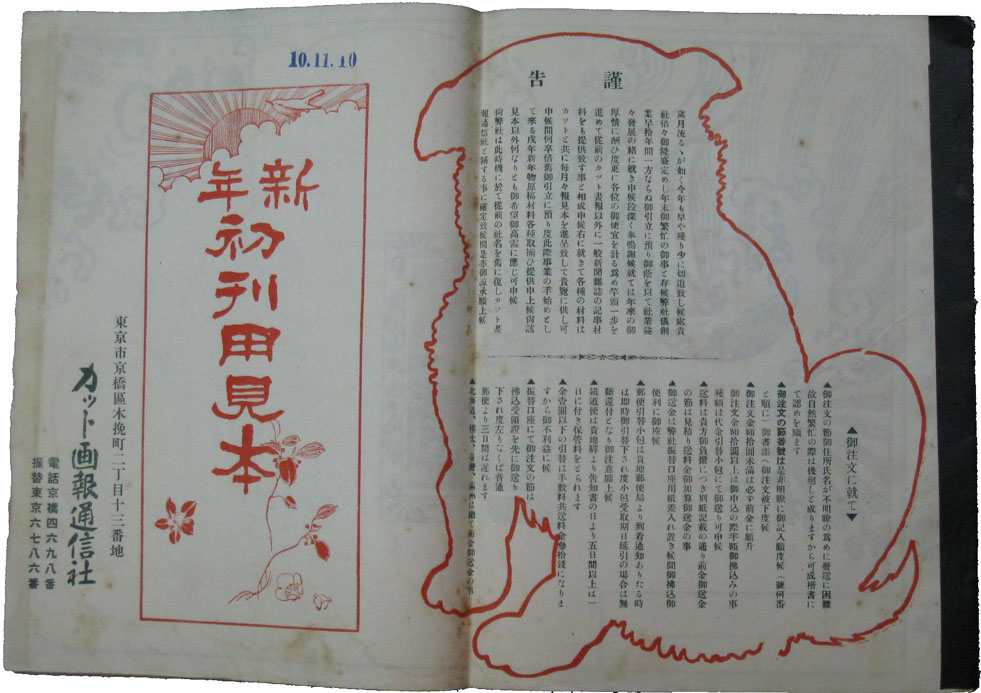 謹告
歳月流るゝが如く今年も早や殘り少に切迫致し候處貴
社倍々御隆盛定めし年末御繁忙の御事と存候弊社儀創
業早拾年間一方ならぬ御引立に預り御蔭を以て社業益
々發展の緒に就き申候段深く奉鳴謝候就ては年來の御
厚情に酬ひ度更に各位の御便宜を計る爲め竿頭一步を
進めて從前のカット畫報以外に一般新聞雜誌の記事材
料をも提供致す事と相成申候右に就きて各種の材料は
カットと共に每月々報見本を進呈致して貴覽に供し可
申候間何卒倍舊御引立に預り度此際事業の手始めとし
て來る戌年新年物原稿材料各種取揃ひ提供申上候尙該
見本以外何なりとも御希望御高需に應じ可申候
尙弊社は此時機に於て從前の社名を舊に復しカット畫
報通信社と稱する事に確定致候間是亦御諒承願上候
▲御注文に就て▼
▲御注文の節御住所氏名が不明瞭の爲めに發送に困難
故自然繁忙の際は後廻しと成りますから可成楷書に
て認めを願ます
▲御注文の節番號は是非明瞭に御記入願度候（號何番
と順に）御書語へ御注文被下度候
▲御注文金額拾圓未滿は必ず前金に願升
御注文金額拾圓以上は御申込の際半額御拂込みの事
殘額は代金引替小包にて御送り可申候
▲送料は貴方御負擔につき別紙記載の通り前金御送金
の節は見積り送料金御加算御送金の事
▲御送金は弊社振替口座用紙差入れ置き候間御拂込御
便利に御座候
▲郵便引替小包は貴地郵便局より到着通知ありたる時
は卽時御引替下され度小包受取期日延引の場合は無
斷返付となり御注意願上候
▲鐵道便は貴地驛より告知書の日より五日間以上は一
日に付き保管料をとられます
▲金壹圓以下の引替は手數料共送料金參拾錢になりま
すから御不利益に候
▲振替口座にて御注文の節は
拂込受領證を先に御送り
下され度左もなくば普通
郵便より三日間は遲れます
▲北海道、樺太、臺灣、滿洲は總て前金御送金の事
10.11.10
新年
初刊用見本
東京市京橋區木挽町二丁目十三番地
カット画報通信社
電話京橋四六九八番
振替東京六七八六番